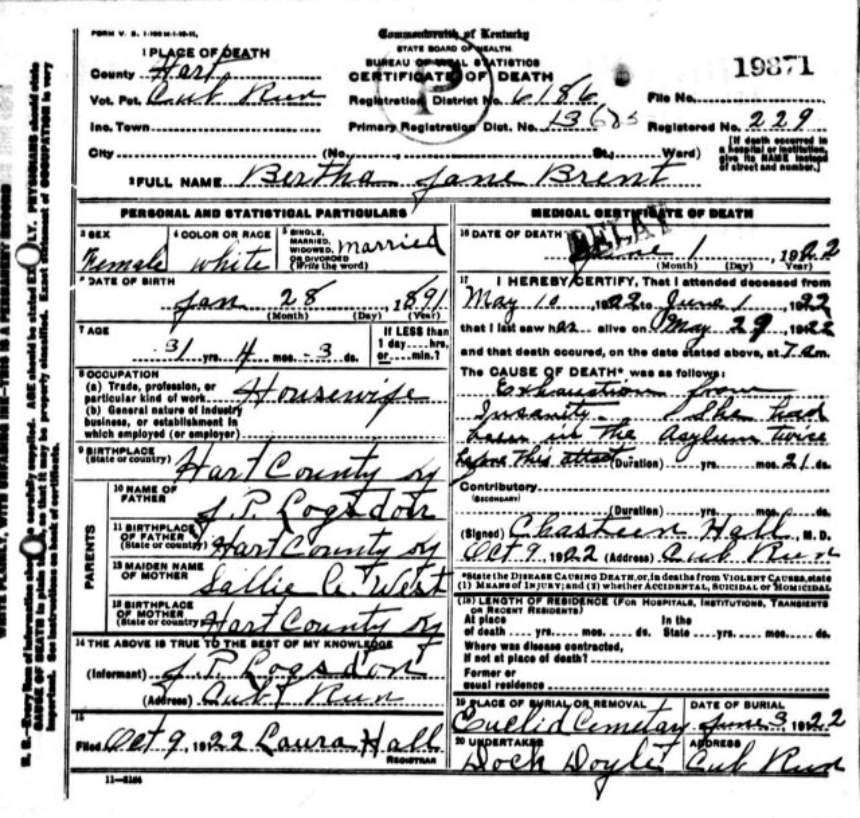 FORM V. S. 1-
Commonwealth of Kentucky
STATE BOARD OF HEALTH
BUREAU OF VITAL STATISTICS
CERTIFICATE OF DEATH
19871
1 PLACE OF DEATH
County Hart
Vot. Pct. Cub Run
Inc. Town
City (No. St., Ward)
Registration District No. 6186
Primary Registration Dist. No.
File No.
Registered No. 229
[If death occurred in a hospital or institution, give its NAME instead of street and number.]
P
2 FULL NAME Bertha Jane Brent
PERSONAL AND STATISTICAL PARTICULARS
3 SEX
Female
4 COLOR OR RACE
white
5 SINGLE, MARRIED, WIDOWED, OR DIVORCED (Write the word)
married
6 DATE OF BIRTH
Jan 28, 1891
(Month) (Day) (Year)
7 AGE
31 yrs. 4 mos. 3 ds.
If LESS than 1 day....hrs. or....min.?
8 OCCUPATION
(a) Trade, profession, or particular kind of work Housewife
(b) General nature of industry business, or establishment in which employed (or employer)
9 BIRTHPLACE
(State or country) Hart County Ky
PARENTS
10 NAME OF FATHER J. P. Logsdon
11 BIRTHPLACE OF FATHER (State or country) Hart County Ky
12 MAIDEN NAME OF MOTHER Sallie A. West
13 BIRTHPLACE OF MOTHER (State or country) Hart County Ky
14 THE ABOVE IS TRUE TO THE BEST OF MY KNOWLEDGE
(Informant) J. P. Logsdon
(Address) Cub Run
15
Filed Oct 9, 1922 Laura Hall
REGISTRAR
11-5184
MEDICAL CERTIFICATE OF DEATH
DELAY
16 DATE OF DEATH June 1, 1922
(Month) (Day) (Year)
17 I HEREBY CERTIFY, That I attended deceased from
May 10, 1922 to June 1, 1922
that I last saw her alive on May 29, 1922
and that death occured, on the date stated above, at 7 a.m.
The CAUSE OF DEATH* was as follows:
Exhaustion from
Insanity. She had
been in the asylum twice
before this (Duration) yrs. mos. 21 ds.
Contributory
(SECONDARY)
(Duration) yrs. mos. ds.
(Signed) Chasteen Hall, M. D.
Oct 9, 1922 (Address) Cub Run
*State the DISEASE CAUSING DEATH, or, in deaths from VIOLENT CAUSES, state
(1) MEANS OF INJURY; and (2) whether ACCIDENTAL, SUICIDAL or HOMICIDAL
(18) LENGTH OF RESIDENCE (FOR HOSPITALS, INSTITUTIONS, TRANSIENTS OR RECENT RESIDENTS)
At place of death .... yrs. .... mos. .... ds. In the State .... yrs. .... mos. .... ds.
Where was disease contracted,
If not at place of death?
Former or usual residence
19 PLACE OF BURIAL OR REMOVAL
Euclid Cemetary
DATE OF BURIAL
June 3, 1922
20 UNDERTAKER
Dock Doyle
ADDRESS
Cub Run